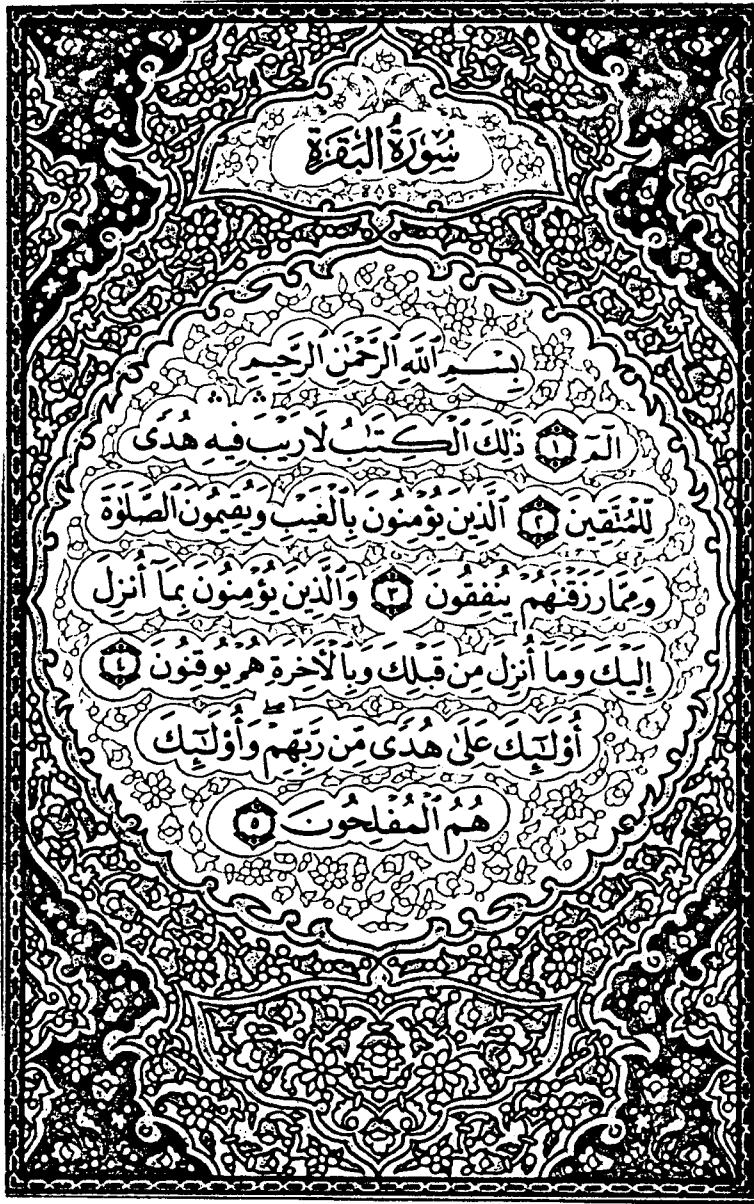 سُورَةُ البَقَرَةِ
بِسْمِ اللَّهِ الرَّحْمَٰنِ الرَّحِيمِ
الٓمٓ ١ ذَٰلِكَ ٱلْكِتَٰبُ لَا رَيْبَ ۛ فِيهِ ۛ هُدًى
لِّلْمُتَّقِينَ ٢ ٱلَّذِينَ يُؤْمِنُونَ بِٱلْغَيْبِ وَيُقِيمُونَ ٱلصَّلَوٰةَ
وَمِمَّا رَزَقْنَٰهُمْ يُنفِقُونَ ٣ وَٱلَّذِينَ يُؤْمِنُونَ بِمَآ أُنزِلَ
إِلَيْكَ وَمَآ أُنزِلَ مِن قَبْلِكَ وَبِٱلْءَاخِرَةِ هُمْ يُوقِنُونَ ٤
أُو۟لَٰٓئِكَ عَلَىٰ هُدًى مِّن رَّبِّهِمْ ۖ وَأُو۟لَٰٓئِكَ
هُمُ ٱلْمُفْلِحُونَ ٥